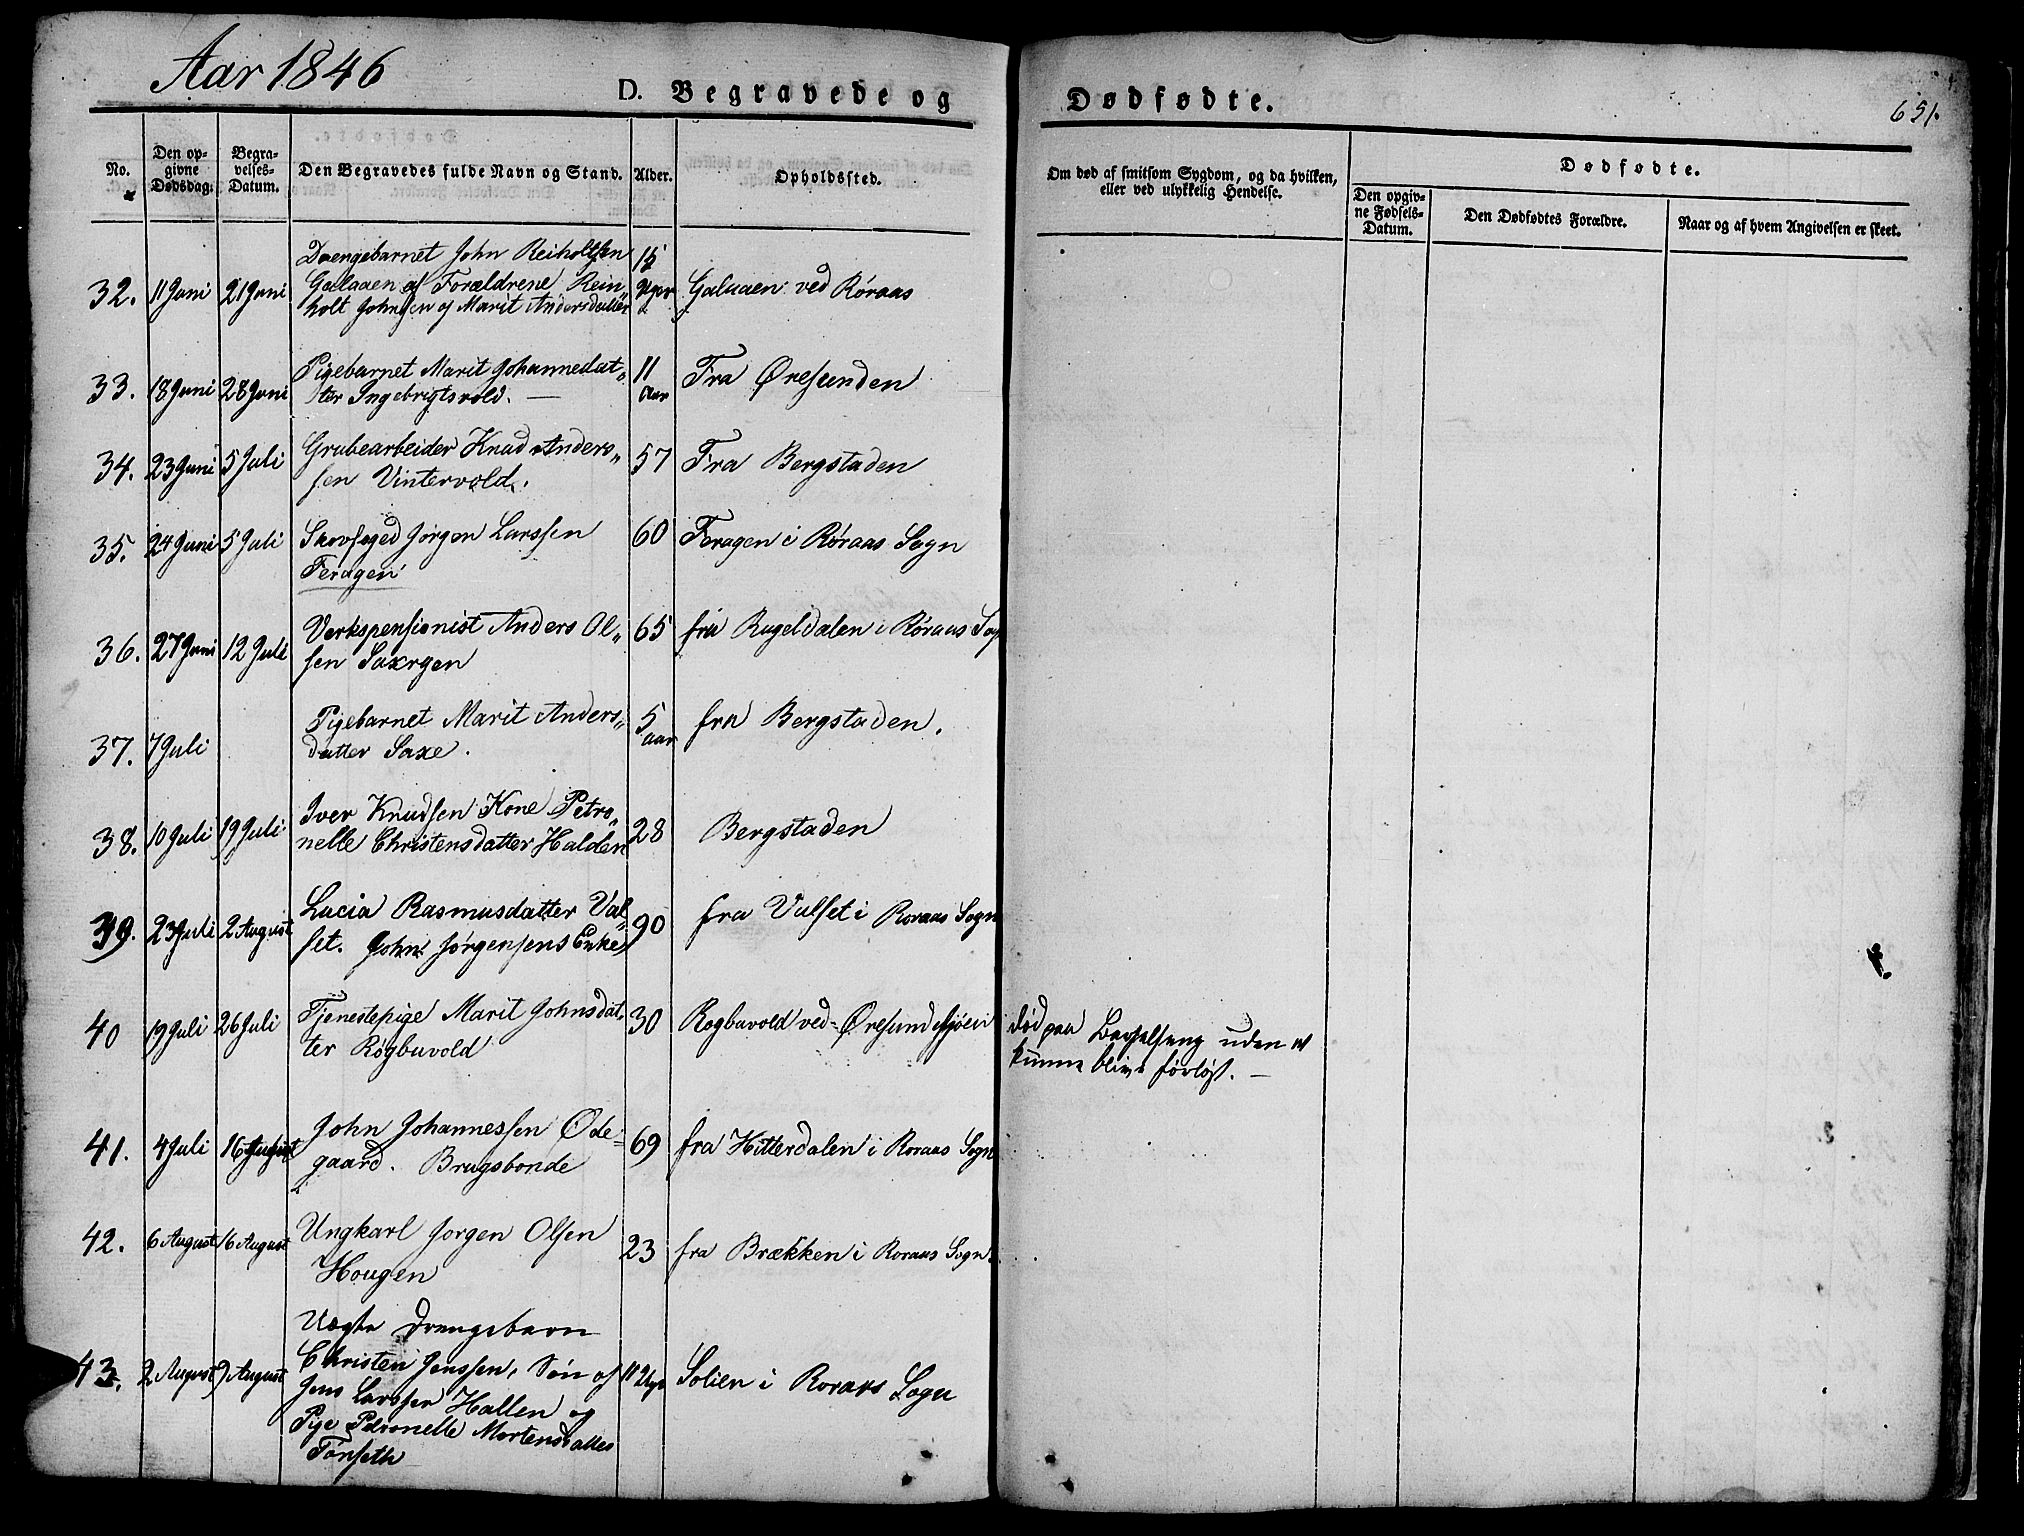 Aar 1846
D. Begravede og
Dødfødte.
651.
No.
Den op-
givne
Dødsdag.
Begra-
velses-
Datum.
Den Begravedes fulde Navn og Stand.
Alder.
Opholdssted.
Om død af smitsom Sygdom, og da hvilken,
eller ved ulykkelig Hendelse.
Dødfødte.
Den opgiv-
ne Fødsels-
Datum.
Den Dødfødtes Forældre.
Naar og af hvem Angivelsen er skeet.
Drengebarnet John Reiholtsen
32. 11 Juni 21 Juni Galaaen af Forældrene Rein„ Galuaen ved Røraas
holt Johnsen og Marit Andersdatter
Pigebarnet Marit Johannesdat„ 11 Fra Øresunden
33. 18 Juni 28 Juni ter Ingebrigtsvold. — Aar
34. 23 Juni 5 Juli Grubearbeider Knud Anders„ 57 Fra Bergstaden
sen Vintervold.
35. 24 Juni 5 Juli Skovfoged Jørgen Larssen 60 Feragen i Røraas Sogn
Feragen
Verkspensionist Anders Ol„ 65 fra Rugeldalen i Røraas Sog
36. 27 Juni 12 Juli sen Saxrgen
Pigebarnet Marit Anders„ 5 fra Bergstaden.
37. 7 Juli datter Saxe. aar
Iver Knudsen Kone Petro„
38. 10 Juli 19 Juli nelle Christensdatter Halden 28 Bergstaden
Lucia Rasmusdatter Val„
39. 23 Juli 2 August set. John Jørgensens Enke 90 fra Valset i Roraas Sogn
Tjenestepige Marit Johnsdat„ 30 Rogbuvold ved Øresundsjøen død paa Barselseng uden at
40 19 Juli 26 Juli ter Røgbuvold kunne blive forløst. —
John Johannessen Øde-
41. 4 Juli 16 August gaard. Brugsbonde 69 fra Hitterdalen i Roraas Sogn
Ungkarl Jorgen Olsen
42. 6 August 16 August Hougen 23 fra Brækken i Roraas Sogn.
Uægte Drengebarn
43. 2 August 9 August Christen Jenssen, Søn af 11 Uger Solien i Roraas Sogn
Jens Larssen Hallen og
Pige Petronelle Mortensdatter
Tønseth